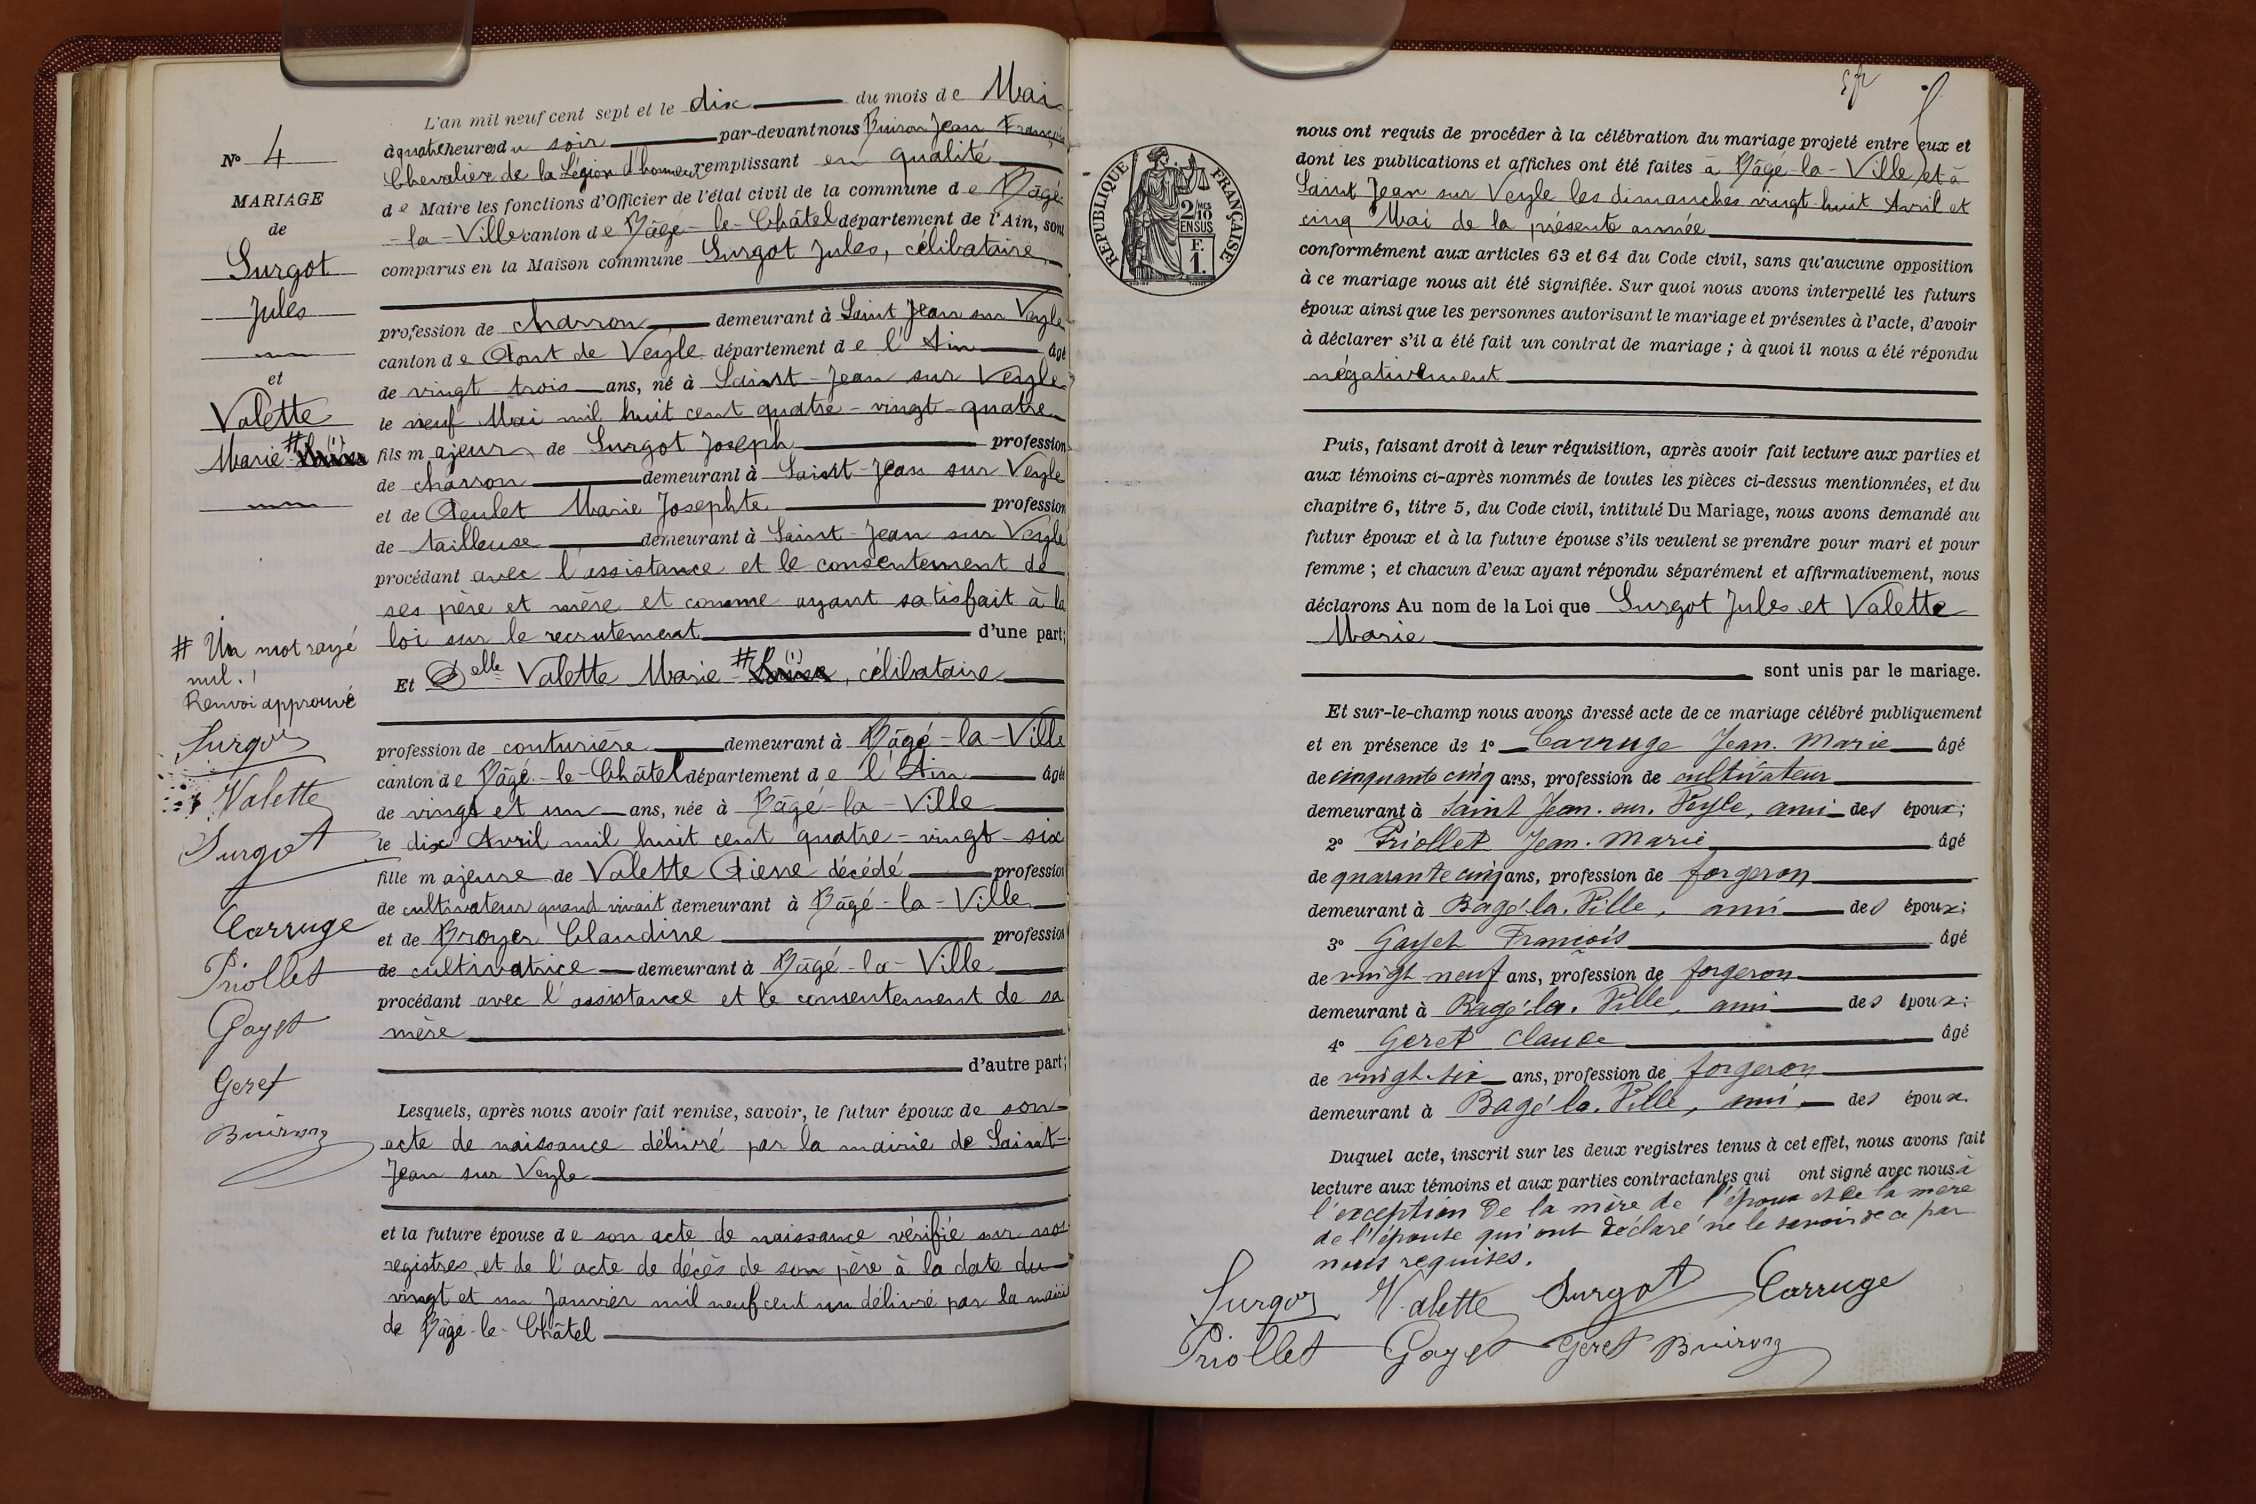 N° 4
MARIAGE
de
Surgot
Jules
et
Valette
Marie # (1)
# Un mot rayé
nul.
Renvoi approuvé
Surgot
Valette
Surgot
Carruge
Priollet
Gayet
Geret
Buiron
L'an mil neuf cent sept et le dix du mois de Mai
à quatre heures du soir par-devant nous Buiron Jean François
Chevalier de la Légion d'honneur remplissant en qualité
de Maire les fonctions d'Officier de l'état civil de la commune de Bâgé-
-la-Ville canton de Bâgé-le-Châtel département de l'Ain, sont
comparus en la Maison commune Surgot Jules, célibataire
profession de charron demeurant à Saint Jean sur Veyle
canton de Pont de Veyle département de l'Ain âgé
de vingt-trois ans, né à Saint-Jean sur Veyle
le neuf Mai mil huit cent quatre-vingt-quatre
fils majeur de Surgot Joseph profession
de charron demeurant à Saint-Jean sur Veyle
et de Peulet Marie Josephte profession
de tailleuse demeurant à Saint-Jean sur Veyle
procédant avec l'assistance et le consentement de
ses père et mère et comme ayant satisfait à la
loi sur le recrutement d'une part;
Et Delle Valette Marie # (1), célibataire
profession de couturière demeurant à Bâgé-la-Ville
canton de Bâgé-le-Châtel département de l'Ain âgée
de vingt et un ans, née à Bâgé-la-Ville
le dix Avril mil huit cent quatre-vingt-six
fille majeure de Valette Pierre décédé profession
de cultivateur quand vivait demeurant à Bâgé-la-Ville
et de Broyer Claudine profession
de cultivatrice demeurant à Bâgé-la-Ville
procédant avec l'assistance et le consentement de sa
mère
d'autre part;
Lesquels, après nous avoir fait remise, savoir, le futur époux de son
acte de naissance délivré par la mairie de Saint-
Jean sur Veyle
et la future épouse de son acte de naissance vérifié sur nos
registres, et de l'acte de décès de son père à la date du
vingt et un Janvier mil neuf cent un délivré par la mairie
de Bâgé-le-Châtel
RÉPUBLIQUE FRANÇAISE
2/10 MES
EN SUS
F.
1.
nous ont requis de procéder à la célébration du mariage projeté entre eux et
dont les publications et affiches ont été faites à Bâgé-la-Ville et à
Saint Jean sur Veyle les dimanches vingt-huit Avril et
cinq Mai de la présente année
conformément aux articles 63 et 64 du Code civil, sans qu'aucune opposition
à ce mariage nous ait été signifiée. Sur quoi nous avons interpellé les futurs
époux ainsi que les personnes autorisant le mariage et présentes à l'acte, d'avoir
à déclarer s'il a été fait un contrat de mariage ; à quoi il nous a été répondu
négativement
Puis, faisant droit à leur réquisition, après avoir fait lecture aux parties et
aux témoins ci-après nommés de toutes les pièces ci-dessus mentionnées, et du
chapitre 6, titre 5, du Code civil, intitulé Du Mariage, nous avons demandé au
futur époux et à la future épouse s'ils veulent se prendre pour mari et pour
femme ; et chacun d'eux ayant répondu séparément et affirmativement, nous
déclarons Au nom de la Loi que Surgot Jules et Valette
Marie
sont unis par le mariage.
Et sur-le-champ nous avons dressé acte de ce mariage célébré publiquement
et en présence de 1° Carruge Jean-Marie âgé
de cinquante cinq ans, profession de cultivateur
demeurant à Saint Jean-sur-Veyle, ami des époux;
2° Priollet Jean-Marie âgé
de quarante cinq ans, profession de forgeron
demeurant à Bagé-la-Ville, ami des époux;
3° Gayet François âgé
de vingt neuf ans, profession de forgeron
demeurant à Bagé-la-Ville, ami des époux;
4° Geret Claude âgé
de vingt-six ans, profession de forgeron
demeurant à Bagé-la-Ville, ami des époux.
Duquel acte, inscrit sur les deux registres tenus à cet effet, nous avons fait
lecture aux témoins et aux parties contractantes qui ont signé avec nous à
l'exception de la mère de l'époux et de la mère
de l'épouse qui ont déclaré ne le savoir de ce par
nous requises.
Surgot Valette Surgot Carruge
Priollet Gayet Geret Buiron